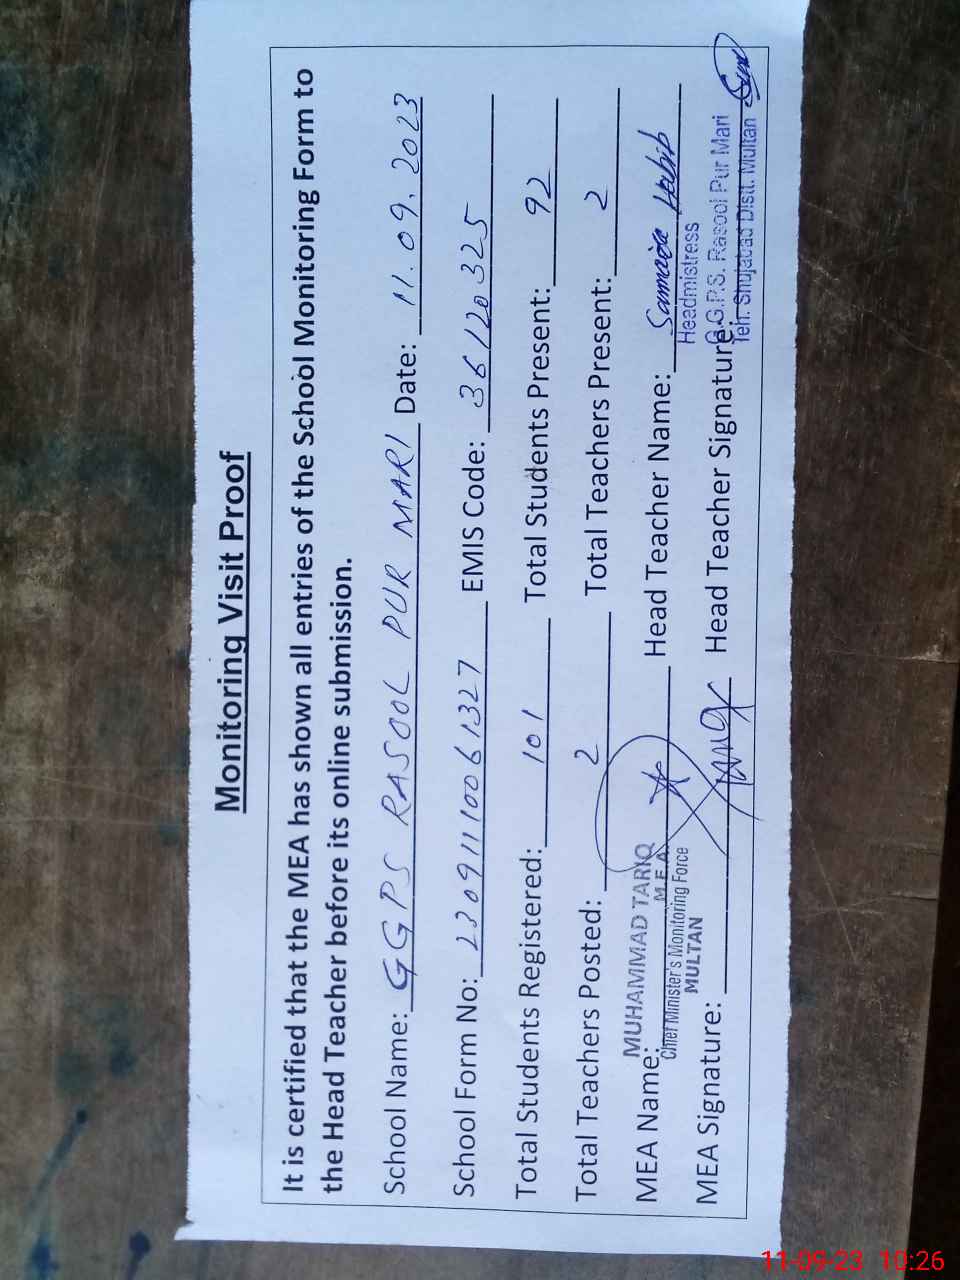 Monitoring Visit Proof
It is certified that the MEA has shown all entries of the School Monitoring Form to
the Head Teacher before its online submission.
School Name: GGPS RASOOL PUR MARI Date: 11.09.2023
School Form No: 23091110061327 EMIS Code: 36120325
Total Students Registered: 101 Total Students Present: 92
Total Teachers Posted: 2 Total Teachers Present: 2
MEA Name: MUHAMMAD TARIQ Head Teacher Name: Habib
M.E.A Headmistress
Chief Minister's Monitoring Force
MULTAN G.G.P.S. Rasool Pur Mari
MEA Signature: Head Teacher Signature: Teh. Shujabad Distt. Multan
11-09-23 10:26